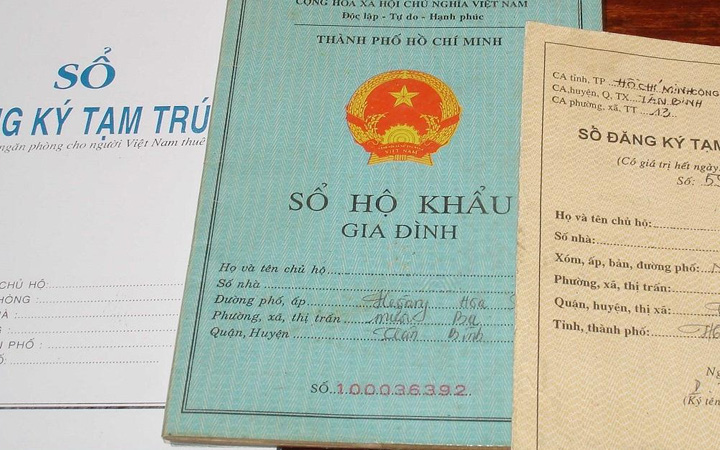 SỔ
NG KÝ TẠM TRÚ
ngăn phòng cho người Việt Nam thuê
CHỦ HỘ:
HÒNG :
À :
G :
I PHỐ :
Ố:
CỘNG HÒA XÃ HỘI CHỦ NGHĨA VIỆT NAM
Độc lập - Tự do - Hạnh phúc
THÀNH PHỐ HỒ CHÍ MINH
VIỆT NAM
SỔ HỘ KHẨU
GIA ĐÌNH
Họ và tên chủ hộ
Số nhà
Đường phố, ấp Hoa
Phường, xã, thị trấn mười Ba
Quận, Huyện Tân Bình
SỐ 100036392
CA tỉnh, TP HỒ CHÍ MINH CÔNG
CA,huyện, Q, TX TÂN BÌNH
CA phường, xã, TT 13
SỔ ĐĂNG KÝ TẠM
(Có giá trị hết ngày
Số: 59
Họ và tên chủ hộ:
Số nhà:
Xóm, ấp, bản, đường phố:
Phường, xã, thị trấn:
Quận, huyện, thị xã:
Tỉnh, thành phố:
Ng
(Ký tên